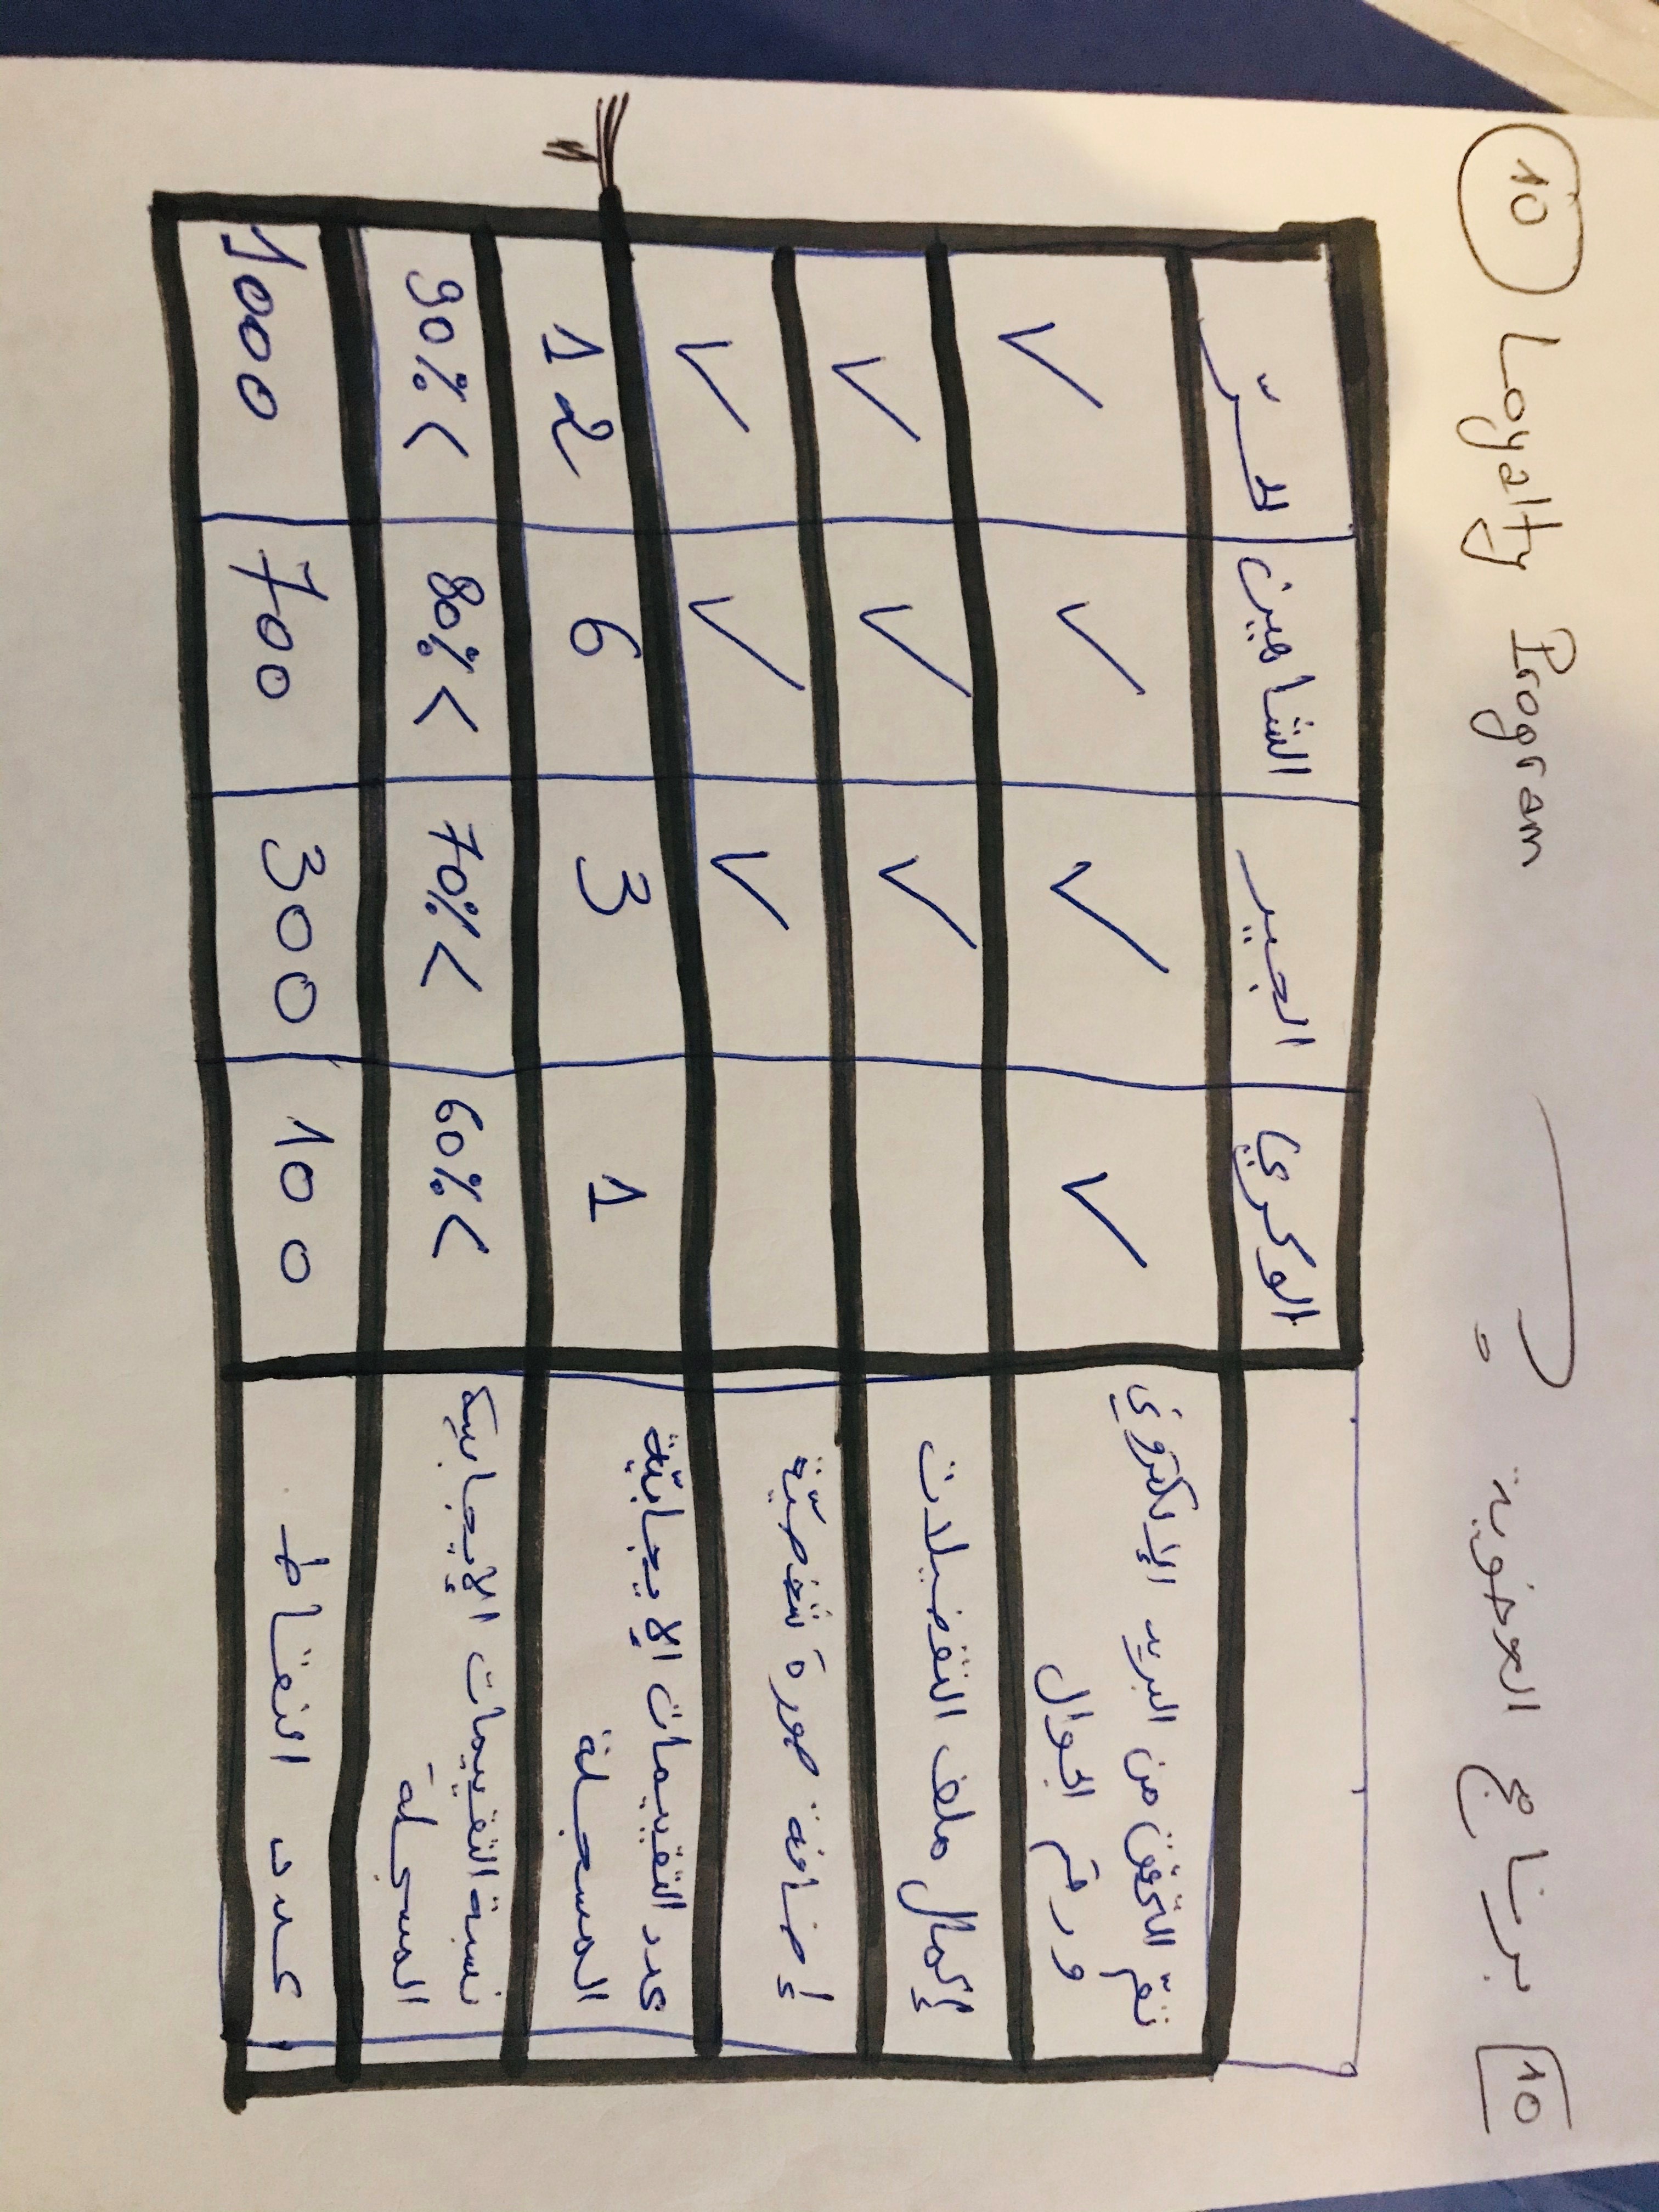 10 Loyalty Program
10 برنامج العضوية
الوكري الجير الشاهين الحرّ
تمّ التحقق من البريد الإلكتروني
ورقم الجوال ✓ ✓ ✓ ✓
إكمال ملف التفضيلات ✓ ✓ ✓
إضافة صورة شخصيّة ✓ ✓ ✓
عدد التقييمات الإيجابيّة
المسجلة 1 3 6 12
نسبة التقييمات الإيجابية
المسجلة 60%< 70%< 80%< 90%<
عدد النقاط 100 300 700 1000